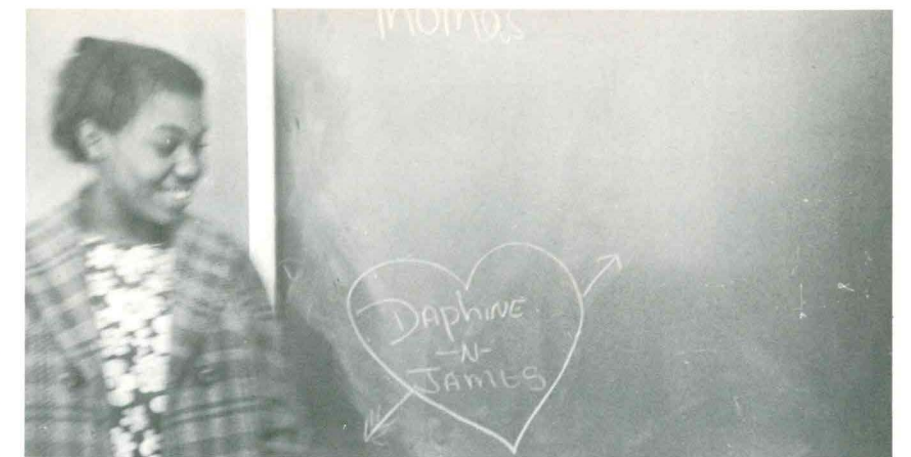 Thomas
DAphiNE
-N-
JAMES